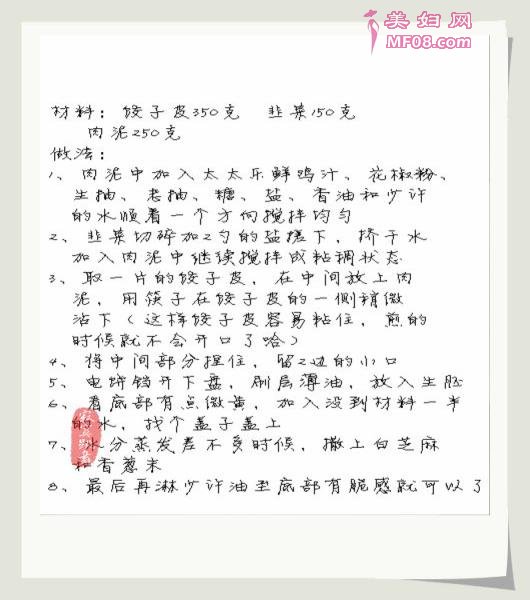 美妇网
MF08.com
材料：饺子皮350克 韭菜150克
肉泥250克
做法：
1、肉泥中加入太太乐鲜鸡汁、花椒粉、
生抽、老抽、糖、盐、香油和少许
的水顺着一个方向搅拌均匀
2、韭菜切碎加2勺的盐搓下，挤干水
加入肉泥中继续搅拌成粘稠状态
3、取一片的饺子皮，在中间放上肉
泥，用筷子在饺子皮的一侧稍微
沾下（这样饺子皮容易粘住，煎的
时候就不会开口了哈）
4、将中间部分捏住，留2边的小口
5、电饼铛开下盘，刷层薄油，放入生胚
6、看底部有点微黄，加入没到材料一半
的水，找个盖子盖上
7、水分蒸发差不多时候，撒上白芝麻
和香葱末
8、最后再淋少许油至底部有脆感就可以了